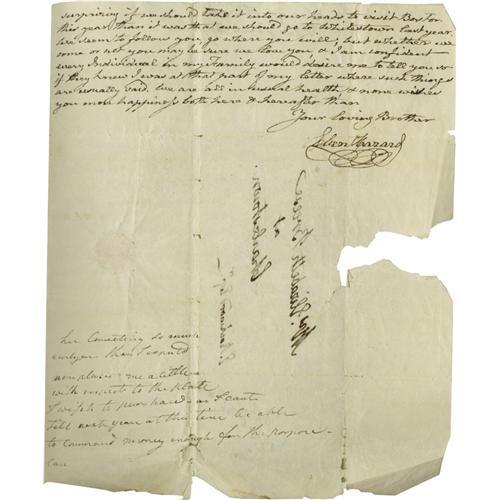 surprising if we should take it into our heads to visit Boston
this year than it was that we should go to Whitestown last year.
We seem to follow you go where you will; but whether we
come or not you may be sure we love you & I am confident
every Individual in my Family would desire me to tell you so
if they knew I was at that part of my letter where such things
are usually said. We are all in usual health, & none wishes
you more happiness both here & hereafter than
Your Loving Brother
Eben Hazard
her Consenting so much
earlyer than I could
complase me a little
with respect to the plate
I wish to purchase as I cant
till next year at this time be able
to command money enough for the purpose -
can